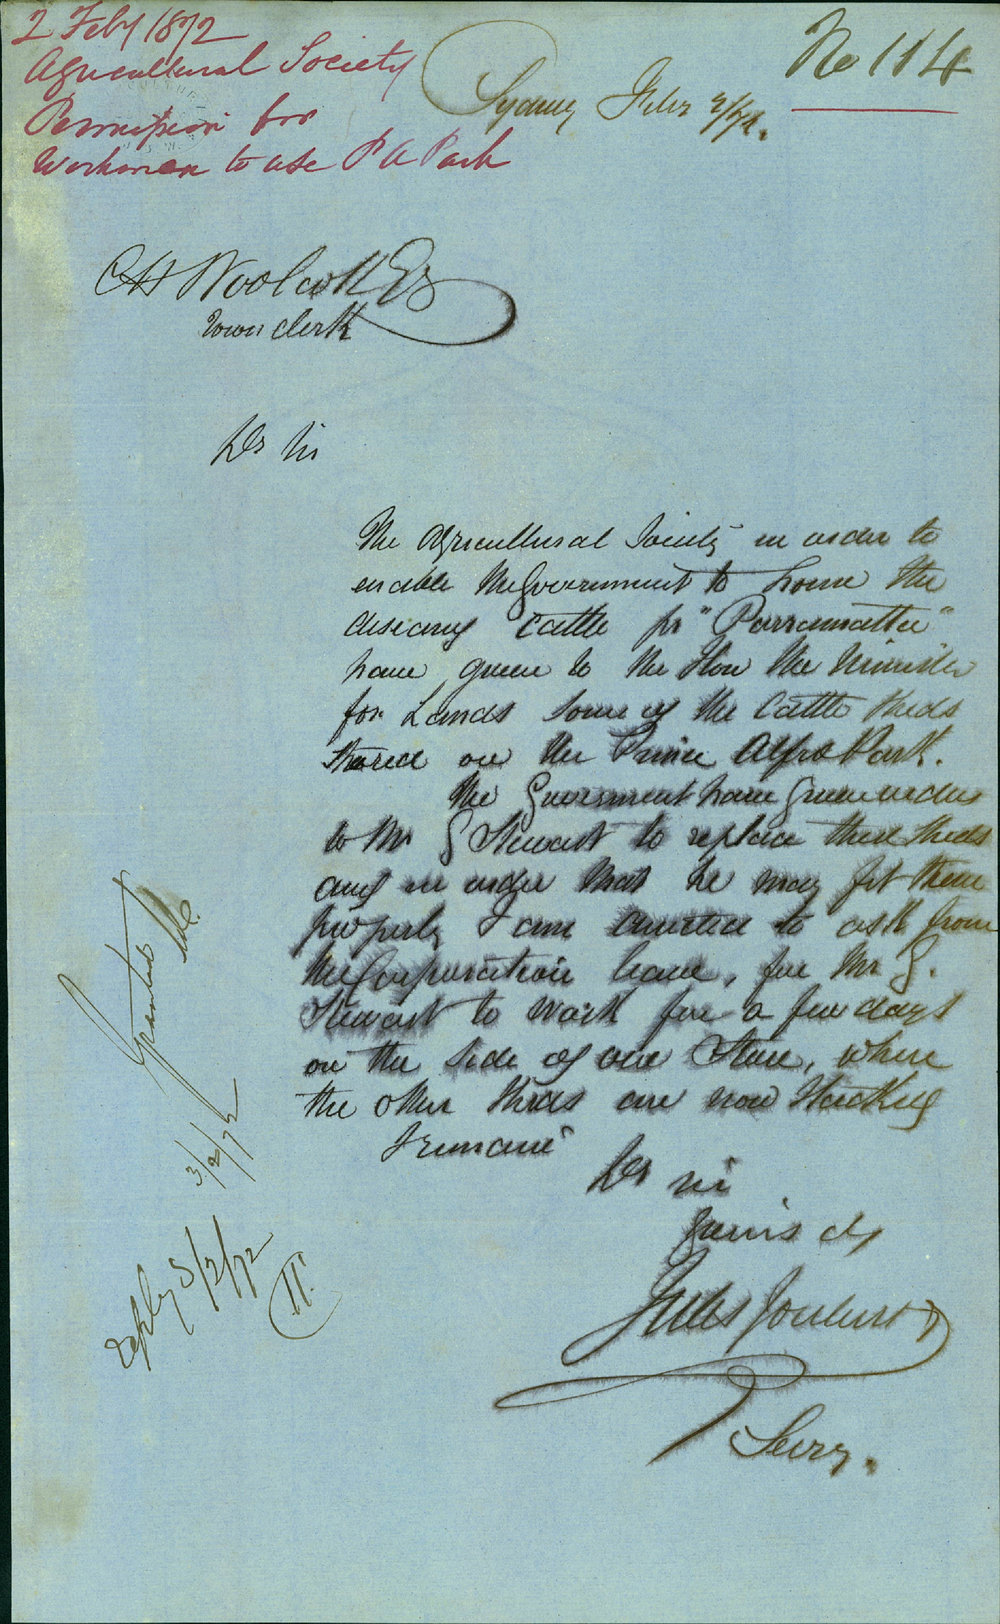 2 Feby 1872
Agricultural Society
Permission for
Workmen to use P A Park
No 114
Sydney Feby 2/72.
CH Woolcott Esq
Town Clerk
Dr Sir
The Agricultural Society in order to
enable the Government to house the
diseased Cattle pr "Parramatta"
have given to the Hon the Minister
for Lands some of the Cattle sheds
stored on the Prince Alfred Park.
The Government have given orders
to Mr G Stewart to replace these sheds
and in order that he may fit them
properly I am directed to ask from
the Corporation leave, for Mr G.
Stewart to work for a few days
on the side of our Store, where
the other sheds are now stacked
I remain
Dr Sir
Yours dy
Jules Joubert
Secry.
Granted
3/2/72
reply 5/2/72
11.